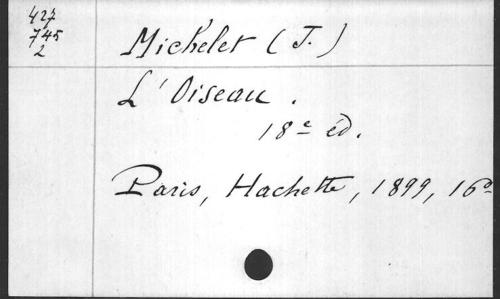 427
745
2
Michelet (J.)
L'Oiseau.
18e éd.
Paris, Hachette, 1899, 16º